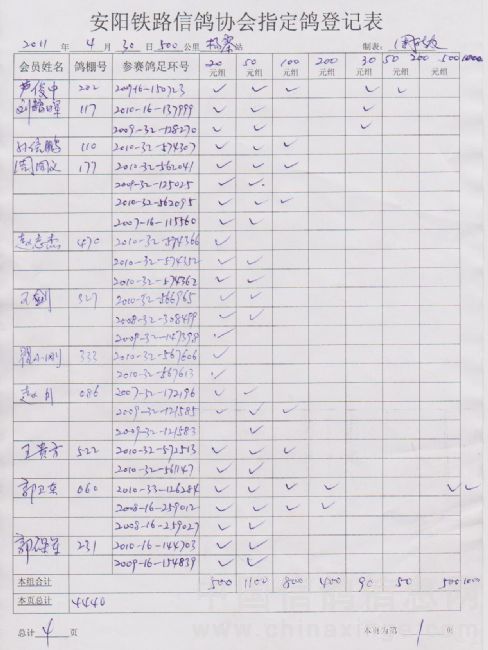 安阳铁路信鸽协会指定鸽登记表
2011 年 4 月 30 日 500 公里 杨寨 站 制表:
会员姓名 鸽棚号 参赛鸽足环号 20元组 50元组 100元组 200元组 30元组 50元组 200元组 500元组 1000
卢俊中 202 2009-16-150723 ✓ ✓ ✓ ✓ ✓
117 2010-16-137999 ✓ ✓ ✓
2009-32-128270 ✓ ✓ ✓
孙信鹏 110 2010-32-574307 ✓ ✓ ✓
周同文 177 2010-32-562041 ✓ ✓ ✓
2009-32-125025 ✓ ✓
2010-32-562095 ✓ ✓ ✓
2007-16-115560 ✓ ✓
赵志杰 470 2010-32-574366 ✓
2010-32-574352 ✓ ✓
2010-32-574362 ✓ ✓
王剑 327 2010-32-566965 ✓ ✓
2008-32-308499 ✓ ✓
2009-32-147398 ✓
翟小刚 333 2010-32-567606 ✓
2010-32-567613 ✓
086 2007-52-172196 ✓ ✓
2009-32-121585 ✓ ✓ ✓
2009-32-121583 ✓
王贵方 522 2010-32-572513 ✓ ✓ ✓
2010-32-561147 ✓ ✓
郭卫东 060 2010-33-126284 ✓ ✓ ✓ ✓ ✓ ✓
2008-16-259012 ✓ ✓ ✓ ✓
2008-16-259027 ✓ ✓
郭保军 231 2010-16-144703 ✓ ✓
2009-16-154839 ✓ ✓
本组合计 500 1100 800 400 90 50 500 1000
本页总计 4440
总计 4 页 本页为第 1 页
www.chinaxinge.com